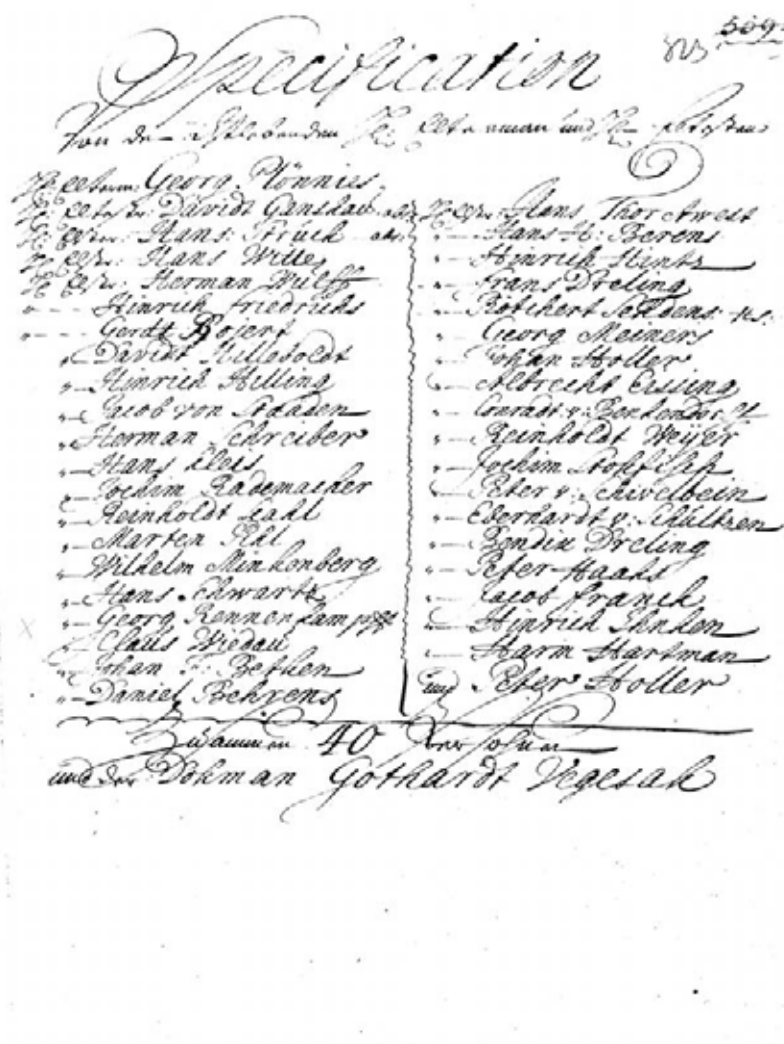 509
Specification
Von den Itzlebenden Hr: Elterman und Hr: Eltesten
Hr: Elterm: Georg Plönnies
Hr: Eltester: Davidt Ganskau
Hr: Elter: Hans Struck
Hr: Elter: Hans Witte
Hr: Elter: Herman Wulff
Hinrich Friedrichs
Gerdt Bosert
Davidt Hilleboldt
Hinrich Hilling
Jacob von Staaden
Herman Schreiber
Hans Kleis
Jochim Rademacher
Reinholdt Zahl
Marten Pihl
Wilhelm Minkenberg
Hans Schwartz
Georg Rennenkampff
Claus Wiedau
Johan F: Bethen
Daniel Behrens
Hr: Elter: Hans Thor Avest
Hans H: Berens
Hinrich Hintz
Frans Dreling
Georg Meiners
Johan Holler
Albrecht Eissing
Conradt v: Benkendorff
Reinholdt Weyer
Jochim Stopfisch
Peter v: Schivelbein
Eberhardt v: Schultzen
Bendix Dreling
Peter Haaks
Jacob Franck
Hinrich
Harm Hartman
und Peter Holler
Zusammen 40 Persohnen
und der Dokman Gothardt Vegesak